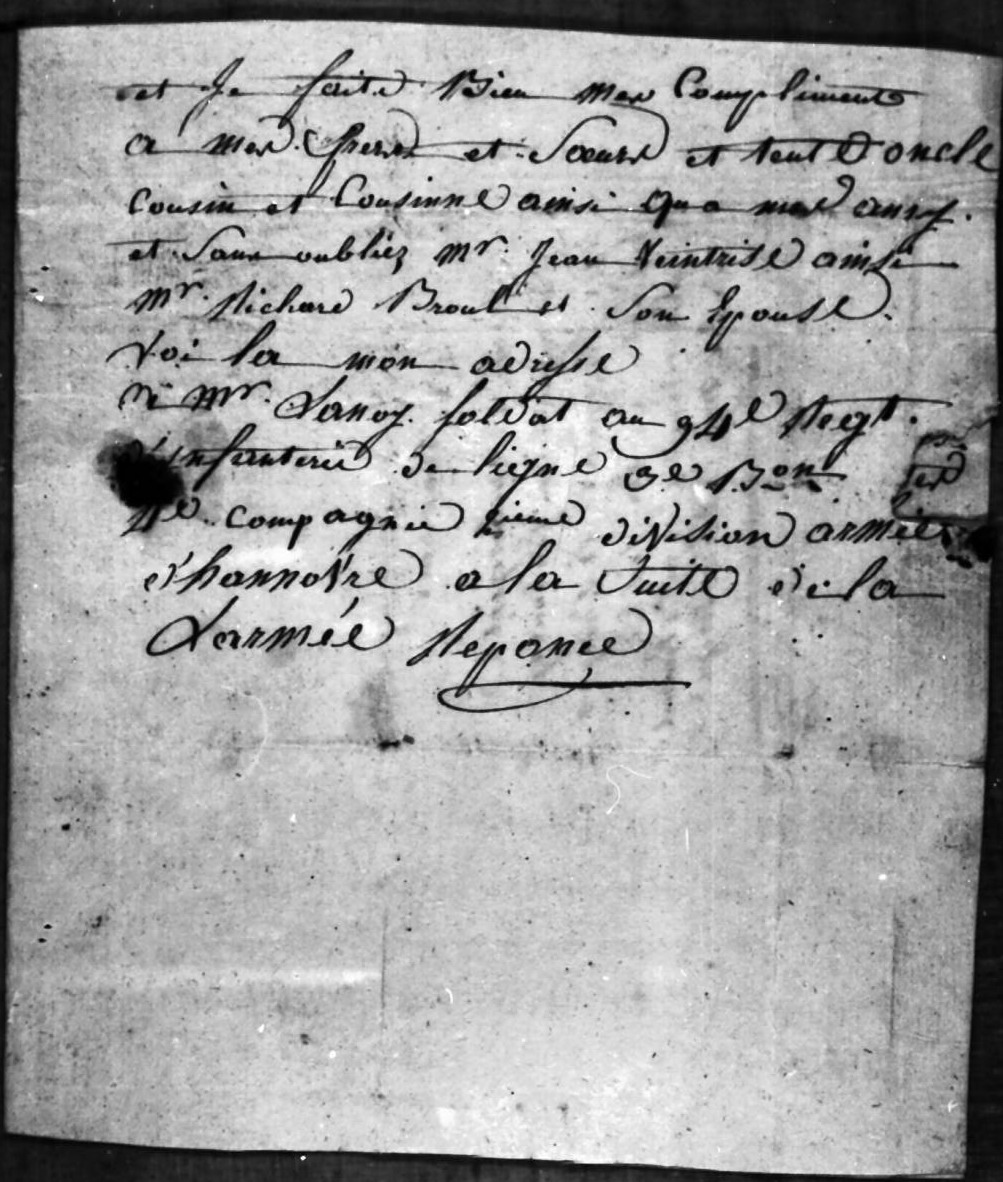 et Je faite Bien mes Compliments
a mes freres et Sœurs et tente oncle
Cousin et Cousinne ainsi qua mes amy.
et Sans oubliez Mr. Jean Veintrise ainsi
Mr. Richard Broul et Son Epouse.
Voi la mon adresse
a Mr. Lanoy. soldat au 94e Regt.
d'infanterie de liegne 3e Bon
4e compagnie division armée
d'hannovre a la Suite de la
Larmée Reponce